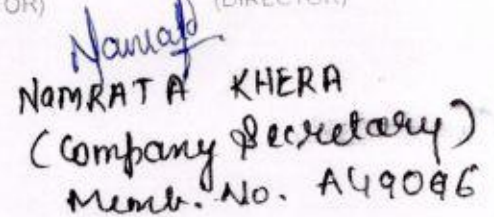 OR) (DIRECTOR)
NAMRATA KHERA
(Company Secretary)
Memb. No. A49096